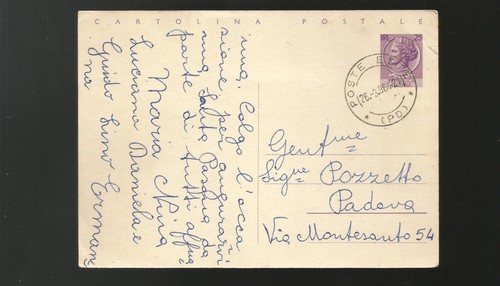 CARTOLINA POSTALE
25
POSTE
26.-3.96
* (PD) *
ima. Colgo l'occa
sione, per augurarvi
una Santa Pasqua da
parte di tutti
Maria Nina
Luciana Daniela e
Guido Lino Erman
na
Gent.me
Sigre Pozzetto
Padova
Via Montesanto 54